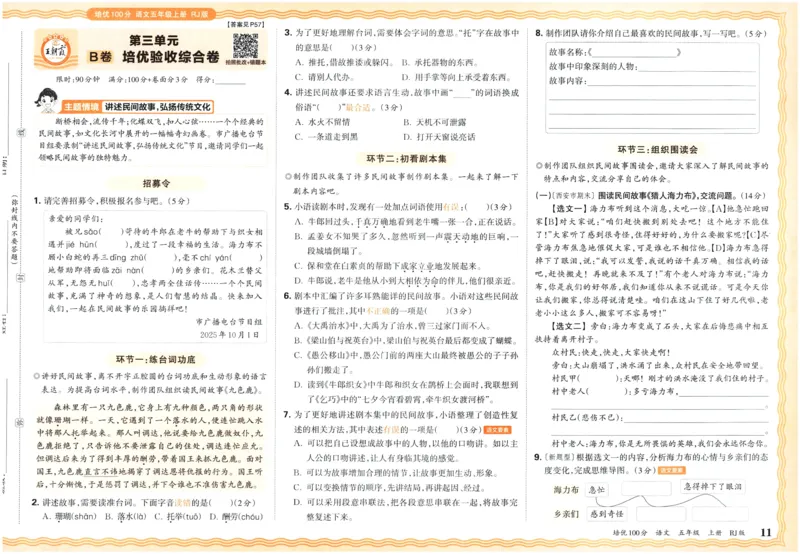 培优100分 语文五年级上册 RJ版
【答案见P57】
王朝霞
B卷
第三单元
培优验收综合卷
拍照批改+错题本
限时:90分钟 满分:100分+卷面分3分 得分:
主题情境 讲述民间故事,弘扬传统文化
断桥相会,流传千年;化蝶双飞,扣人心弦……一个个经典的
民间故事,如文化长河中展开的一幅幅奇幻画卷。市广播电台节
目组要录制“讲述民间故事,弘扬传统文化”节目,邀请同学们一起
领略民间故事的独特魅力。
招募令
1. 请完善招募令,积极报名参与吧。(5分)
亲爱的同学们:
被兄sǎo( )苛待的牛郎在老牛的帮助下与织女相
遇并jié hūn( ),度过了一段幸福的生活。海力布不
顾小白蛇的再三dīng zhǔ( ),毫不chí yán( )
地帮助即将面临zāi nàn( )的乡亲们。花木兰替父
从军,无怨无huǐ( ),忠孝两全佳话传……一个个民间
故事,充满了神奇的想象,是人们智慧的结晶。快来加入
我们,一起在民间故事的乐园徜徉吧!
市广播电台节目组
2025年10月1日
环节一:练台词功底
◎讲好民间故事,离不开字正腔圆的台词功底和生动形象的语言
表达。为提高台词水平,制作团队组织读民间故事《九色鹿》。
森林里有一只九色鹿,它身上有九种颜色,两只角的形状
就像珊瑚一样。一天,它遇到了一个落水的人,便连忙跳入水
中将那人托举起来。那人叫调达,他说要给九色鹿做奴仆,九
色鹿拒绝了,只告诉他不要泄露自己的住处,调达连忙应允。
但调达后来为了得到丰厚的酬劳,带着国王来抓九色鹿。面对
国王,九色鹿直言不讳地揭穿了调达恩将仇报的行为。国王听
后,十分惭愧,于是惩罚了调达,并下令谁也不准伤害九色鹿。
2. 讲述故事,需要读准台词。下面字音读错的是( )(2分)
A. 珊瑚(shān) B. 落水(là) C. 托举(tuō) D. 酬劳(chóu)
3. 为了更好地理解台词,需要体会字词的意思。“托”字在故事中
的意思是( )(3分)
A. 推托,借故推诿或躲闪。 B. 承托器物的东西。
C. 请别人代办。 D. 用手掌等向上承受着东西。
4. 讲述民间故事还要求语言生动,故事中画“____”的词语换成
俗语“( )”最合适。(3分)
A. 水火不留情 B. 天机不可泄露
C. 一条道走到黑 D. 打开天窗说亮话
环节二:初看剧本集
◎制作团队收集了许多民间故事制作剧本集。一起来了解一下
剧本内容吧。
5. 小语读剧本时,发现有一处加点词语使用有误:( )(3分)
A. 牛郎回过头,千真万确地看到老牛嘴一张一合,正在说话。
B. 孟姜女不知哭了多久,忽然听到一声震天动地的巨响,一
段城墙倒塌了。
C. 保和堂在白素贞的帮助下成家立业地发展起来。
D. 牛郎说,老牛是他从小到大相依为命的伴儿,他们很亲近。
6. 剧本中汇编了许多耳熟能详的民间故事。小语对这些民间故
事进行了批注,其中不正确的一项是( )(3分)
A. 《大禹治水》中,大禹为了治水,曾三过家门而不入。
B. 《梁山伯与祝英台》中,梁山伯与祝英台最后都变成了蝴蝶。
C. 《愚公移山》中,愚公门前的两座大山最终被愚公的子子孙
孙们搬走了。
D. 读到《牛郎织女》中牛郎和织女在鹊桥上会面时,我联想到
了《乞巧》中的“七夕今宵看碧霄,牵牛织女渡河桥”。
7. 为了更好地讲述剧本集中的民间故事,小语整理了创造性复
述的相关方法,其中表述有误的一项是( )(3分) 语文要素
A. 可以把自己设想成故事中的人物,以他的口吻讲。如以主
人公的口吻讲述,让人有身临其境的感觉。
B. 可以为故事增加合理的情节,让故事更加生动、形象。
C. 可以变换情节的顺序,先讲结局,再讲起因、经过。
D. 可以采用段意串联法,把各段意思串联在一起,将故事完
整复述下来。
8. 制作团队请你介绍自己最喜欢的民间故事,写一写吧。(5分)
故事名称:《 》
故事中印象深刻的人物:
故事内容:
环节三:组织围读会
◎制作团队组织民间故事围读会,邀请大家深入了解民间故事的
特点和内容,交流分享自己的体会。
(一)[西安市期末] 围读民间故事《猎人海力布》,交流问题。(14分)
【选文一】海力布听到这个消息,大吃一惊。【A】他急忙跑回
家【B】对大家说:“咱们赶快搬到别处去吧!这个地方不能住
了!”大家听了感到很奇怪,住得好好的,为什么要搬家呢?【C】尽
管海力布焦急地催促大家,可是谁也不相信他。【D】海力布急得
掉下了眼泪,说:“我可以发誓,我说的话千真万确。相信我的话
吧,赶快搬走!再晚就来不及了!”有个老人对海力布说:“海力
布,你是我们的好邻居,我们知道你从来不说谎话。可是今天你
让我们搬家,你总得说清楚呀。咱们在这山下住了好几代啦,老
老小小这么多人,搬家可不容易呀!”
【选文二】旁白:海力布变成了石头,大家在后悔悲痛中相互
扶持着离开村子。
众村民:快走,快走,大家快走啊!
旁白:大山崩塌了,洪水涌了出来,众村民在安全地带回望。
村民甲( ):天哪!刚才的洪水淹没了我们住的村子。
村中老人( ):多亏海力布,
。
村民乙(悲伤不已):
。
村中老人:海力布,你是无所畏惧的英雄,我们会永远怀念你。
9. [新题型]根据选文一的内容,分析海力布的心情与乡亲们的态
度变化,完成思维导图。(3分) 语文要素
海力布 急忙 急得掉下了眼泪
乡亲们 感到奇怪
培优100分 语文 五年级 上册 RJ版 11
(你封线内不要答题)